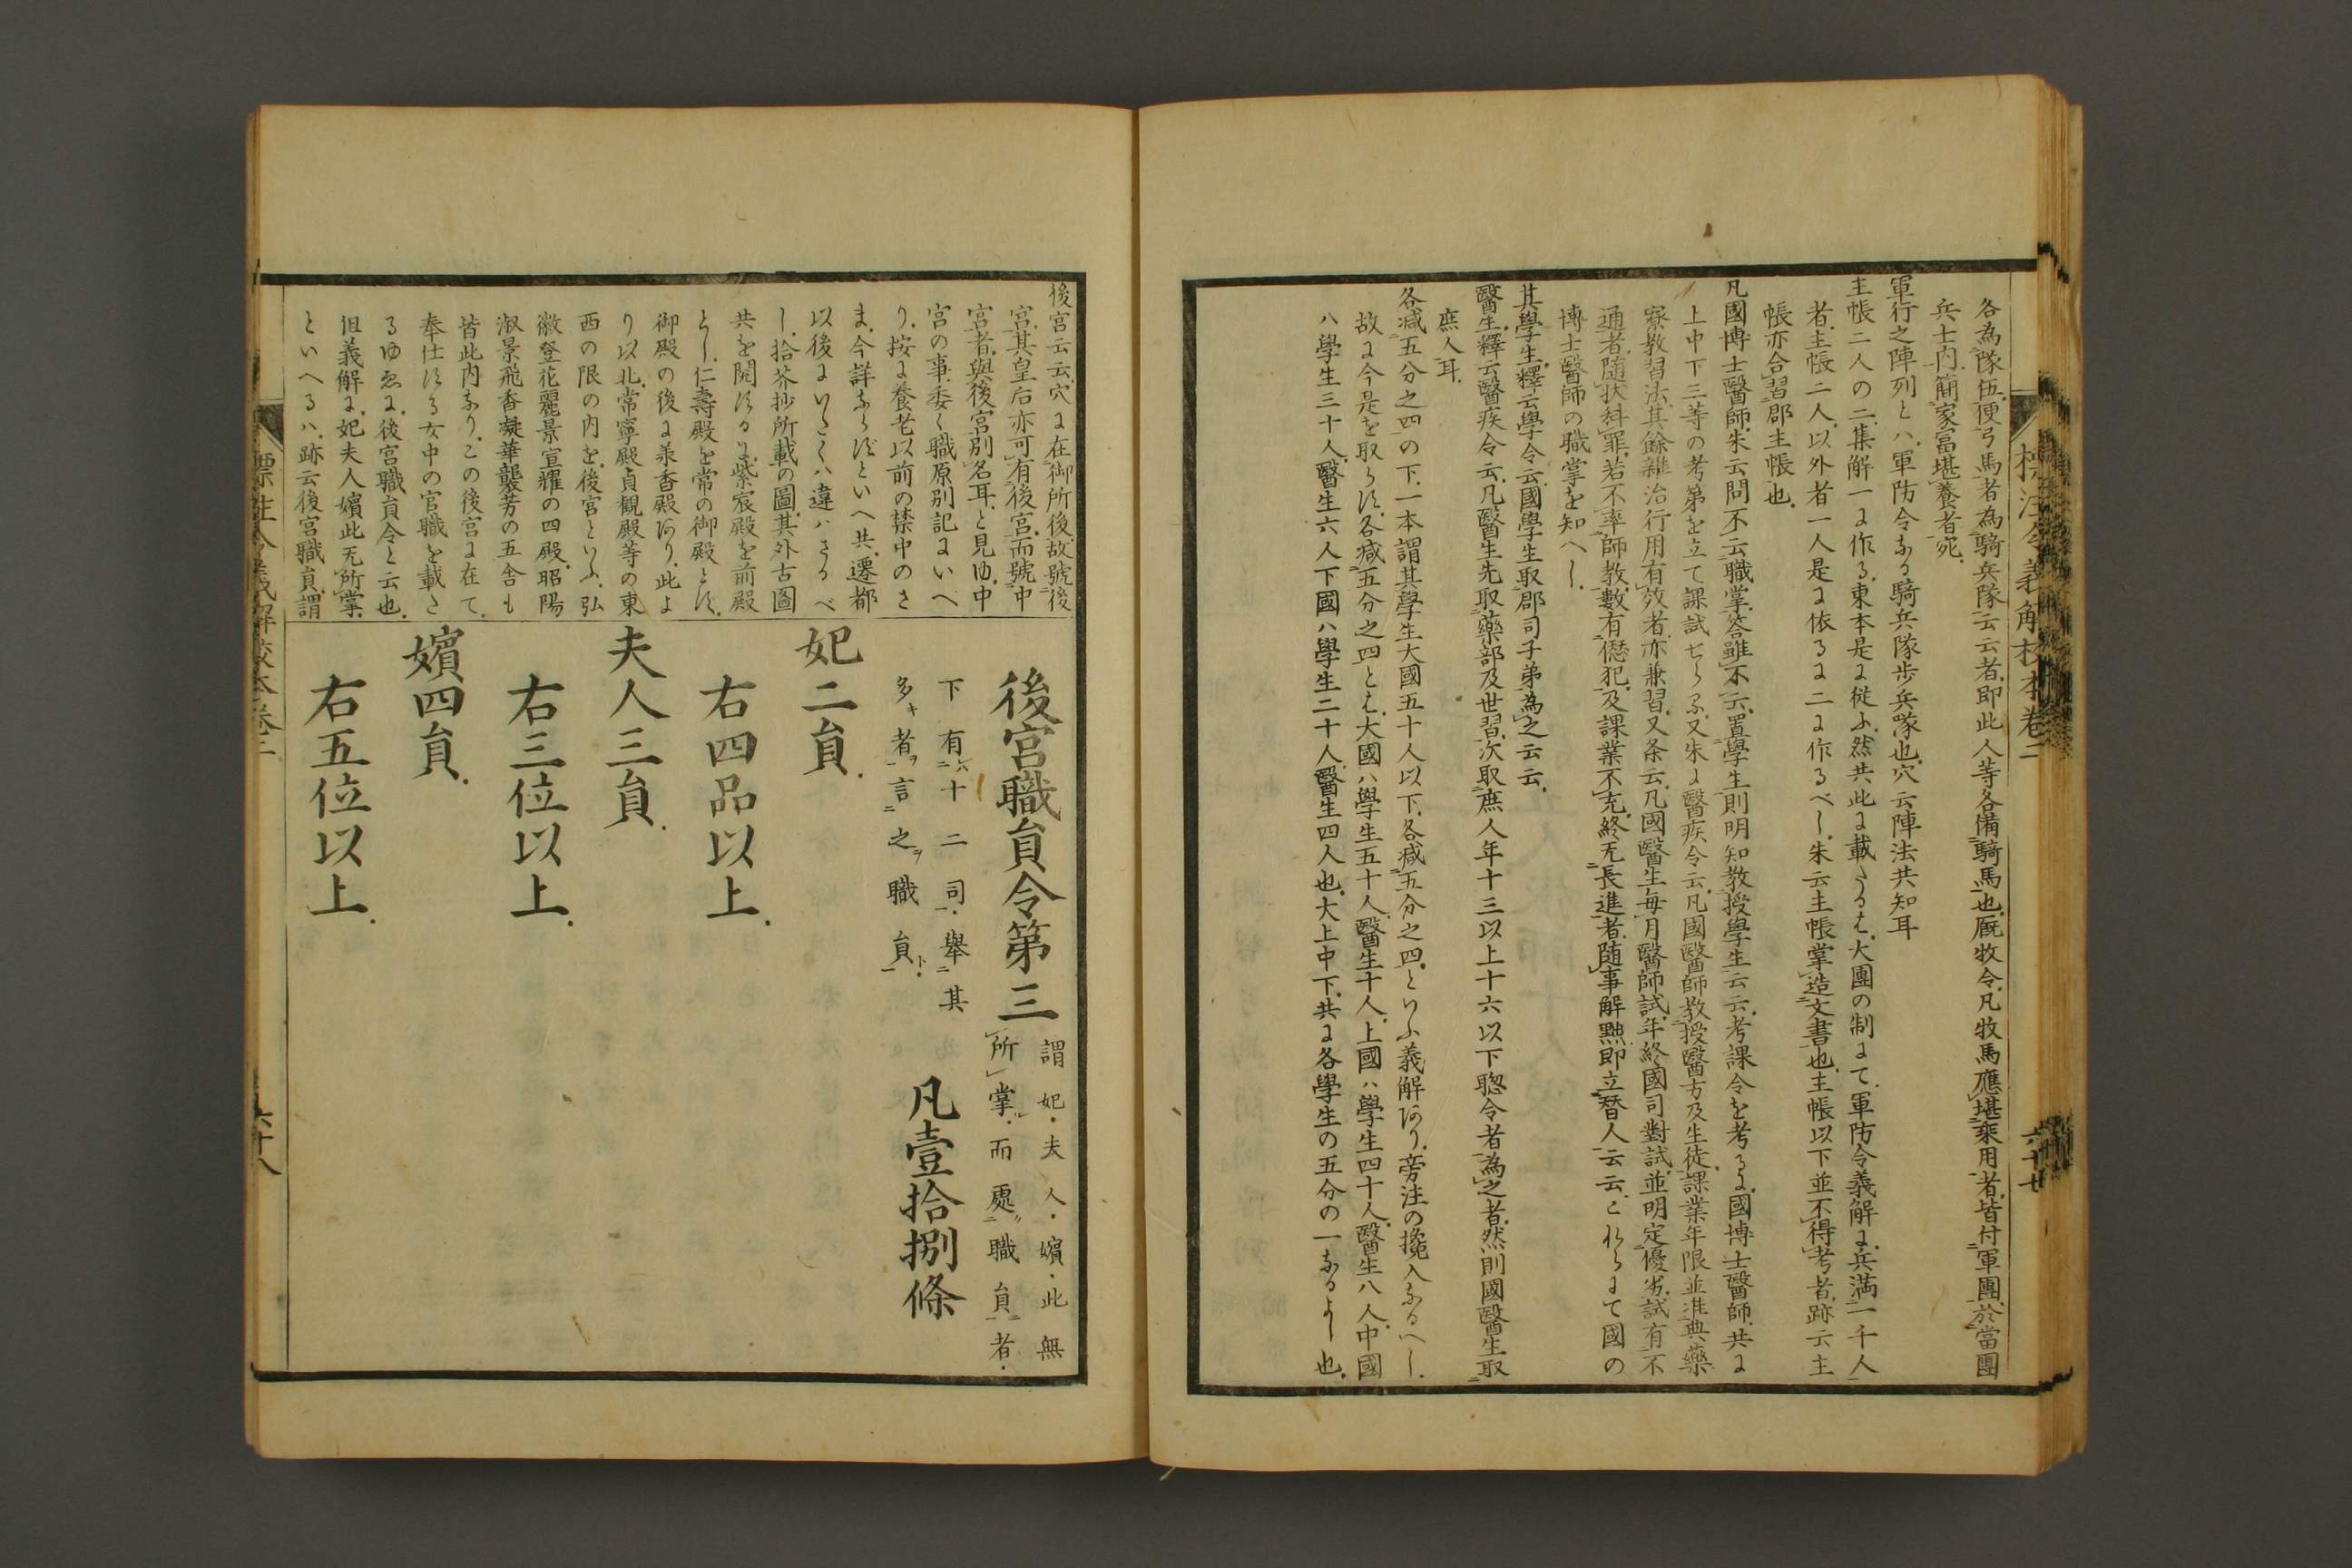 標注令義解校本巻二
六十七
各為隊伍便弓馬者為騎兵隊云云者即此人等各備騎馬也厩牧令凡牧馬應堪乘用者皆付軍團於當團
兵士内簡家富堪養者宛
軍行之陣列とハ軍防令なる騎兵隊歩兵隊也穴云陣法共知耳
主帳二人の二集解一に作る東本是に従ふ然共此に載たるは大團の制にて軍防令義解に兵満一千人
者主帳二人以外者一人是に依るに二に作るべし朱云主帳掌造文書也主帳以下並不得考者跡云主
帳亦合習郡主帳也
凡國博士醫師朱云問不云職掌答雖不云置學生則明知教授學生云云考課令を考るに國博士醫師共に
上中下三等の考第を立て課試せらる又朱に醫疾令云凡國醫師教授醫方及生徒課業年限並准典藥
寮教習法其餘雜治行用有效者亦兼習又条云凡國醫生毎月醫師試年終國司對試並明定優劣試有不
通者随状科罪若不率師教數有愆犯及課業不充終无長進者随事解黜即立替人云云これらにて國の
博士醫師の職掌を知へし
其學生釋云學令云國學生取郡司子弟為之云云
醫生釋云醫疾令云凡醫生先取藥部及世習次取庶人年十三以上十六以下聡令者為之者然則國醫生取
庶人耳
各減五分之四の下一本謂其學生大國五十人以下各減五分之四といふ義解あり旁注の攙入なるへし
故に今是を取らす各減五分之四とは大國ハ學生五十人醫生十人上國ハ學生四十人醫生八人中國
ハ學生三十人醫生六人下國ハ學生二十人醫生四人也大上中下共に各學生の五分の一なるよし也
後宮云云穴に在御所後故號後
宮其皇后亦可有後宮而號中
宮者與後宮別名耳と見ゆ中
宮の事委く職原別記にいへ
り按に養老以前の禁中のさ
ま今詳ならすといへ共遷都
以後にいたくハ違ハさるべ
し拾芥抄所載の圖其外古圖
共を閲するに紫宸殿を前殿
とし仁壽殿を常の御殿とす
御殿の後に承香殿あり此よ
り以北常寧殿貞觀殿等の東
西の限の内を後宮といふ弘
徽登花麗景宣耀の四殿昭陽
淑景飛香凝華襲芳の五舎も
皆此内なりこの後宮に在て
奉仕する女中の官職を載た
るゆゑに後宮職員令と云也
但義解に妃夫人嬪此无所掌
といへるハ跡云後宮職員謂
後宮職員令第三
謂妃・夫人・嬪・此無
所掌・而處職員者・
下有十二司・擧其
多者言之職員
凡壹拾捌條
妃二員
右四品以上
夫人三員
右三位以上
嬪四員
右五位以上
標注令義解校本巻二
六十八